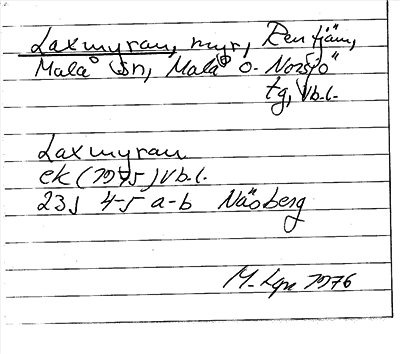 Laxmyran, myr, Rentjäm,
Malå sn, Malå o. Norsjö
tg, Vb.l.
Laxmyran
ek (1975) Vb.l.
23J 4-5 a-b Näsberg
M. 1976